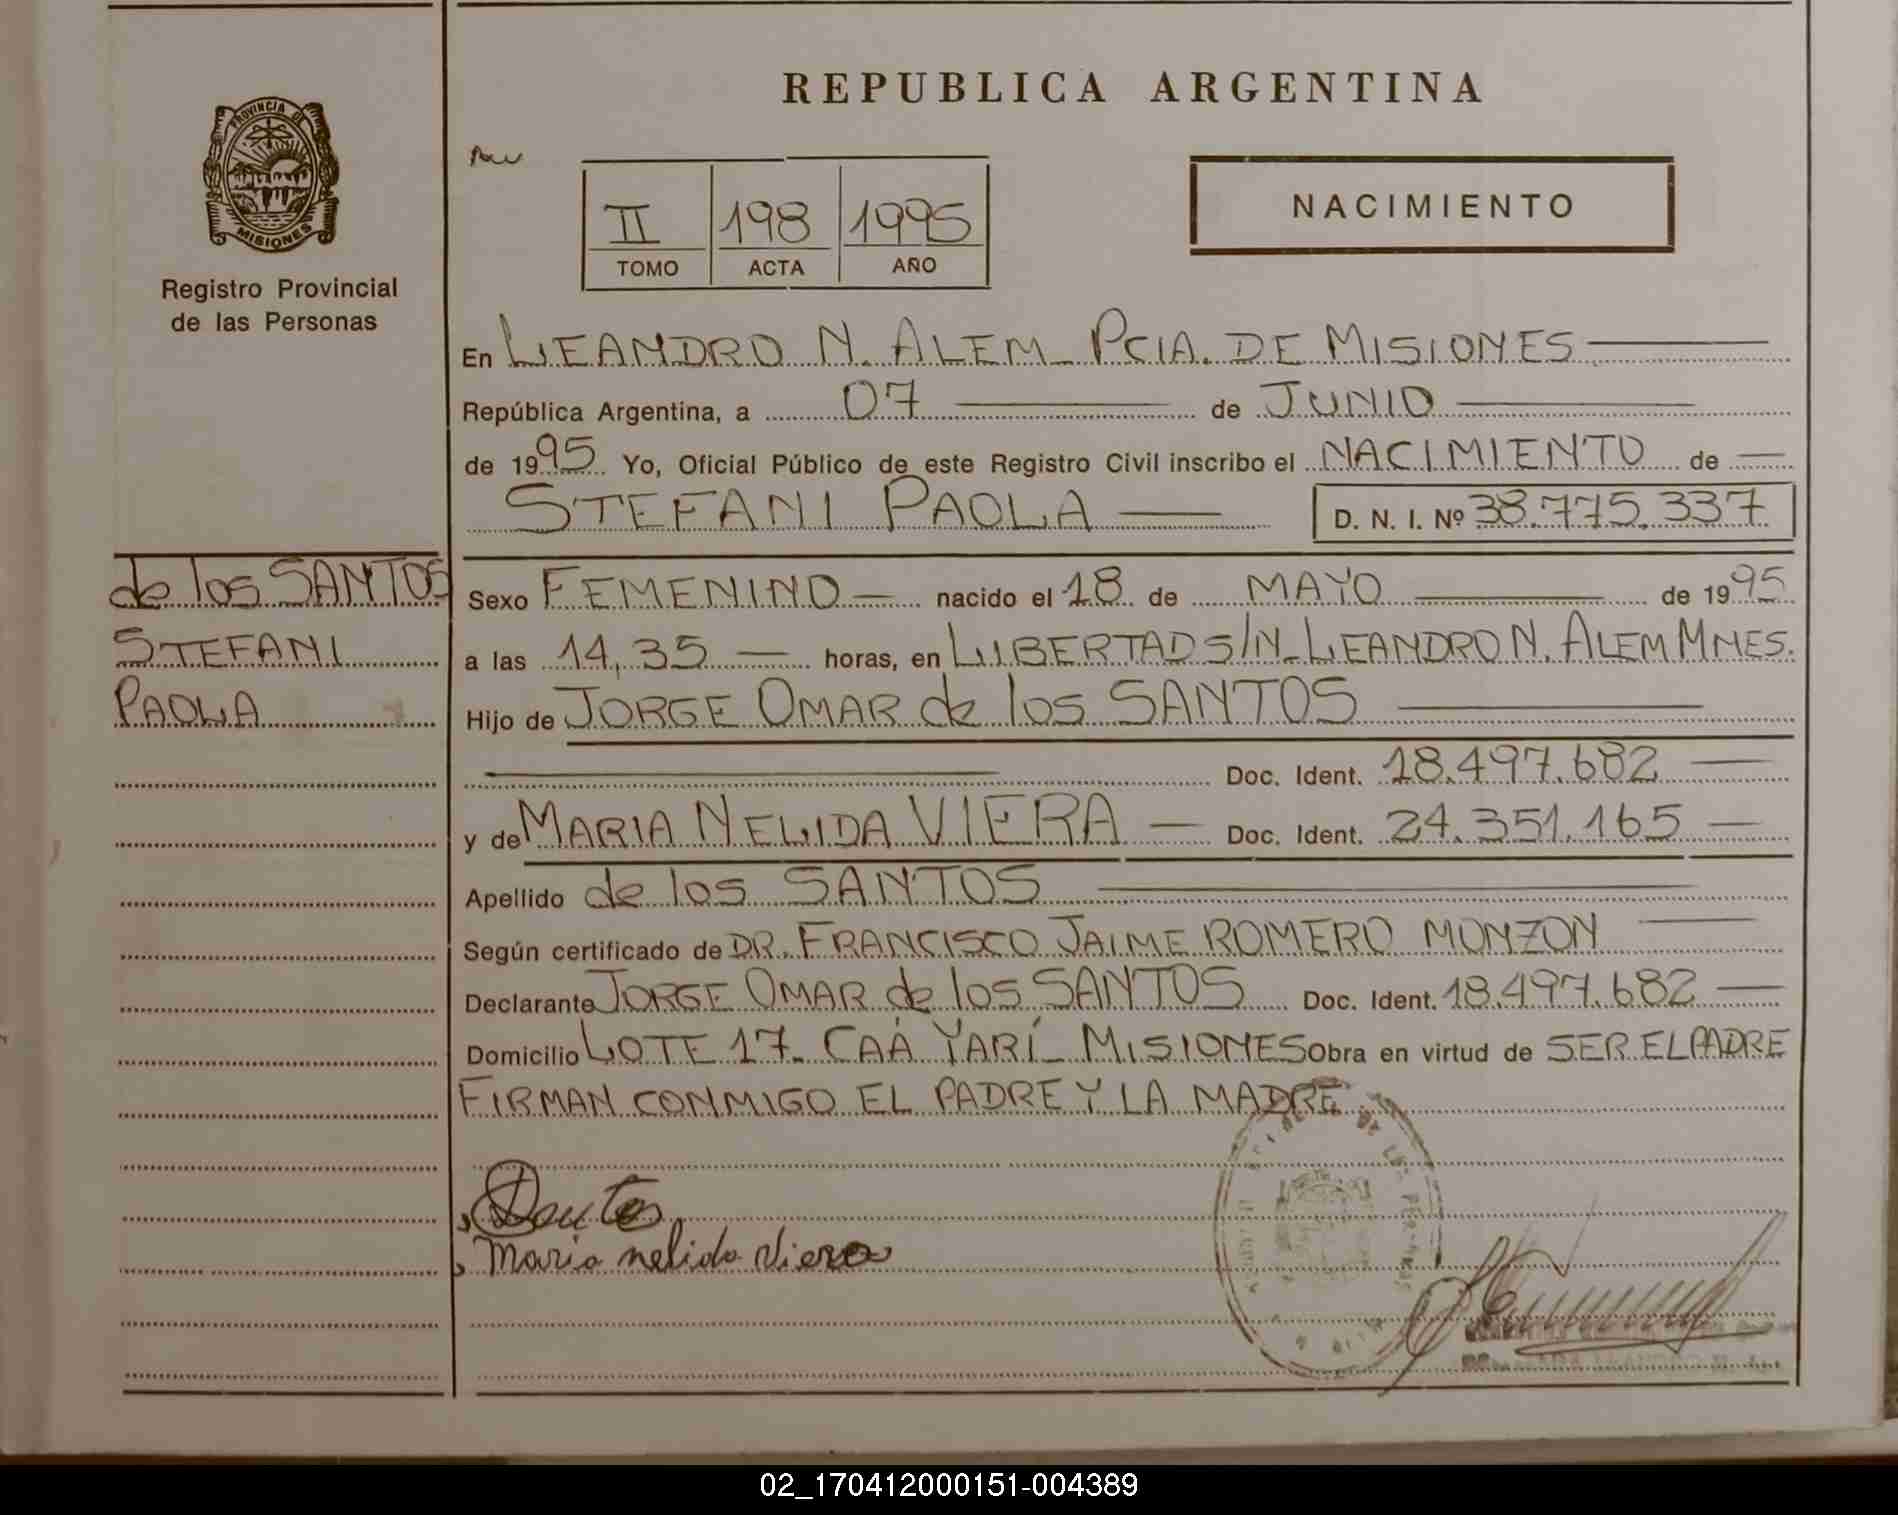 REPUBLICA ARGENTINA
PROVINCIA DE
MISIONES
Registro Provincial
de las Personas
II 198 1995
TOMO ACTA AÑO
NACIMIENTO
En LEANDRO N. ALEM PCIA. DE MISIONES
República Argentina, a 07 de JUNIO
de 1995 Yo, Oficial Público de este Registro Civil inscribo el NACIMIENTO de
STEFANI PAOLA D. N. I. Nº 38.775.337
de los SANTOS
STEFANI
PAOLA
Sexo FEMENINO nacido el 18 de MAYO de 1995
a las 14,35 horas, en LIBERTAD S/N LEANDRO N. ALEM MNES.
Hijo de JORGE OMAR de los SANTOS
Doc. Ident. 18.497.682
y de MARIA NELIDA VIERA Doc. Ident. 24.351.165
Apellido de los SANTOS
Según certificado de DR. FRANCISCO JAIME ROMERO MONZON
Declarante JORGE OMAR de los SANTOS Doc. Ident. 18.497.682
Domicilio LOTE 17. CAÁ YARÍ MISIONES Obra en virtud de SER EL PADRE
FIRMAN CONMIGO EL PADRE Y LA MADRE
Maria nelida Viera
02_170412000151-004389